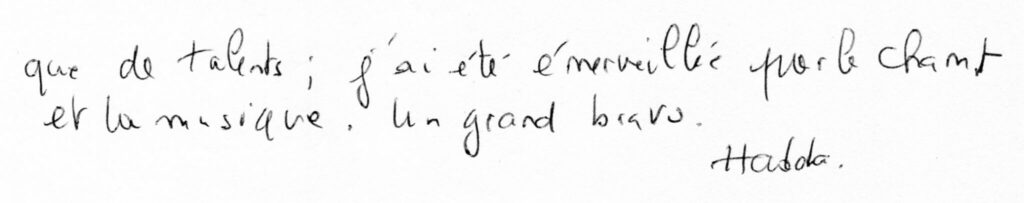 que de talents ; j'ai été émerveillée par le chant
et la musique. Un grand bravo.